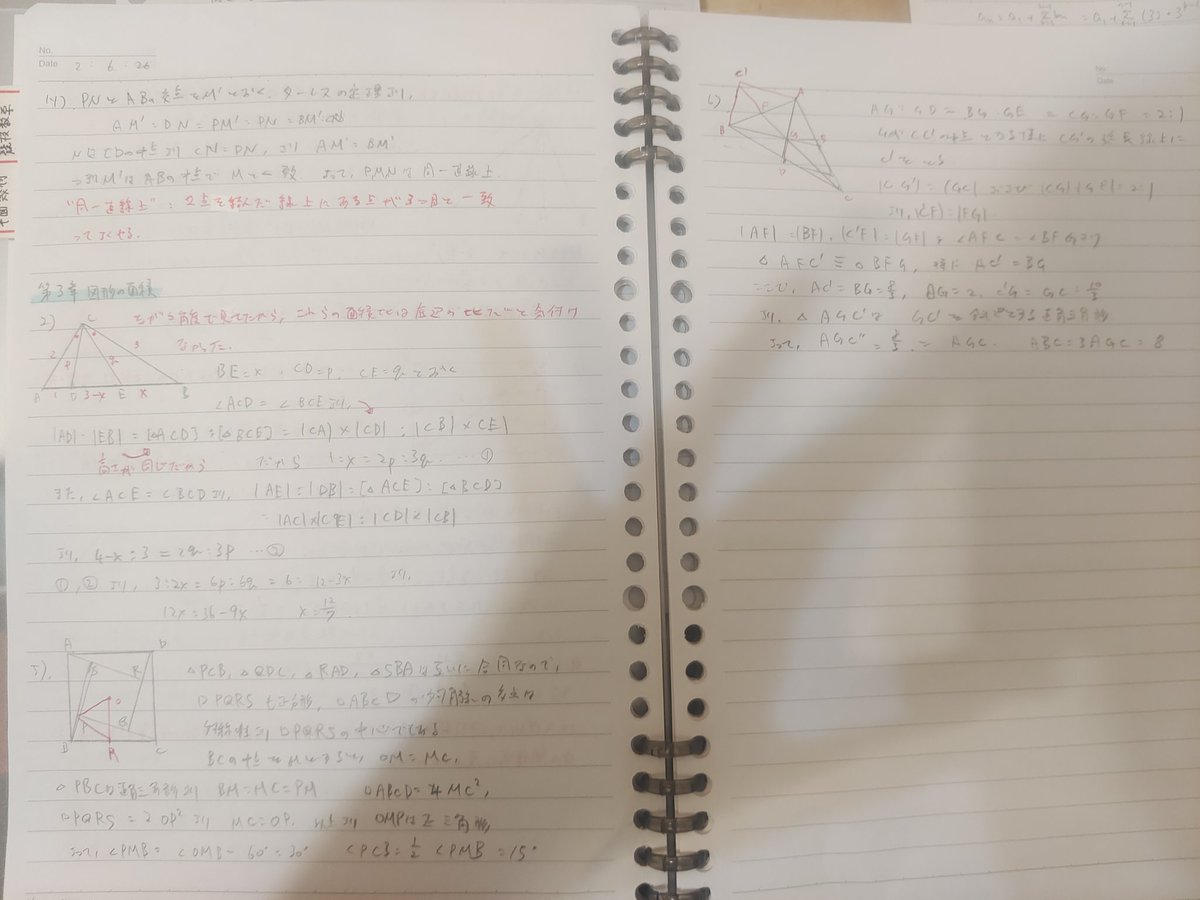 No.
Date 2 ・ 6 ・ 26
14) PNとABの交点をM'とおく。タレスの定理より、
AM' : DN = PM' : PN = BM' : CN
NはCDの中点より CN = DN, より AM' = BM'
つまりM'はABの中点で Mと一致 よって, PMNは同一直線上.
"同一直線上" : 2点を結んだ線上にある点が3つ目と一致
ってしめせる.
第3章 図形の面積
2)
C
2
3
P
q
A
1
D
3-x
E
x
B
ちがう角度で見てたから, これらの面積比は底辺の比だと気付け
なかった.
BE = x , CD = p, CE = q とおく
∠ACD = ∠BCE より,
|AD| : |EB| = [△ACD] : [△BCE] = |CA| × |CD| : |CB| × |CE|
高さが同じだから
だから 1 : x = 2p : 3q … ①
また, ∠ACE = ∠BCD より, |AE| : |DB| = [△ACE] : [△BCD]
= |AC| × |CE| : |CD| × |CB|
より, 4-x : 3 = 2q : 3p … ②
①, ② より, 3 : 2x = 6p : 6q = 6 : 12-3x より,
12x = 36 - 9x x = 12/7
5).
A
D
S
R
O
P
Q
B
M
C
△PCB, △QDC, △RAD, △SBAは互いに合同なので,
□PQRSも正方形, □ABCDの対角線の交点は
対称性より □PQRSの中心でもある
BCの中点をMとすると, OM = MC,
△PBCは直角三角形より BM = MC = PM □ABCD = 4MC²,
□PQRS = 2OP² より MC = OP. 以上より OMPは正三角形
よって, ∠PMB = ∠OMB - 60° = 30° ∠PCB = 1/2 ∠PMB = 15°
No.
Date
6)
C'
A
F
B
G
E
D
C
AG : GD = BG : GE = CG : GF = 2 : 1
GがCC'の中点となる様にCGの延長線上に
C'をとる
|C'G| = |GC| および |CG| : |GF| = 2 : 1
より, |C'F| = |FG|
|AF| = |BF|, |C'F| = |GF|, ∠AFC' = ∠BFGより
△AFC' ≡ △BFG, 特に AC' = BG
より, △AGC'は GC'を斜辺とする直角三角形
ABC = 3AGC = 8